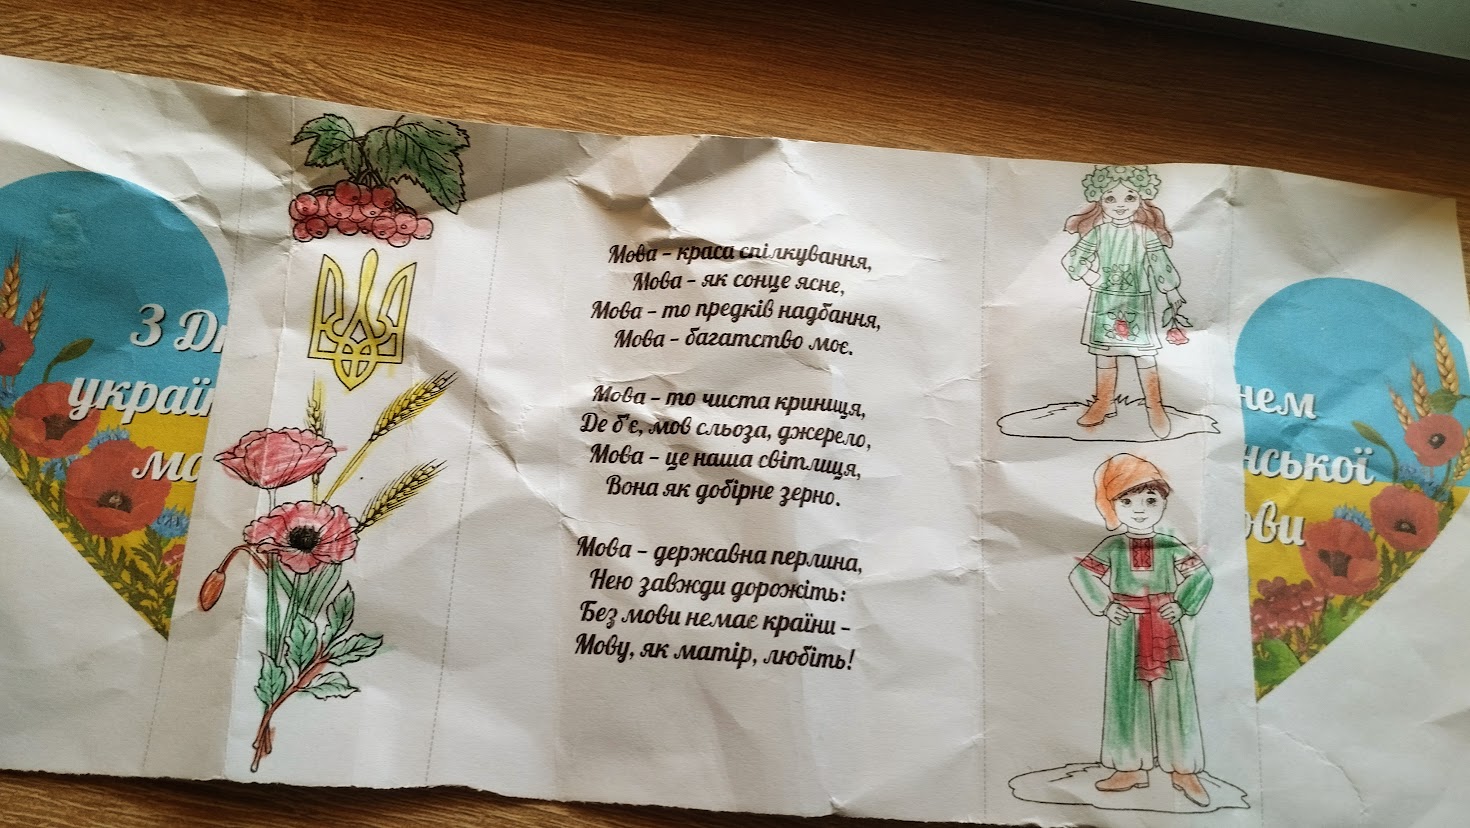 З Дн
україн
ма
Мова – краса спілкування,
Мова – як сонце ясне,
Мова – то предків надбання,
Мова – багатство моє.
Мова – то чиста криниця,
Де б'є, мов сльоза, джерело,
Мова – це наша світлиця,
Вона як добірне зерно.
Мова – державна перлина,
Нею завжди дорожіть:
Без мови немає країни –
Мову, як матір, любіть!
нем
нської
ови